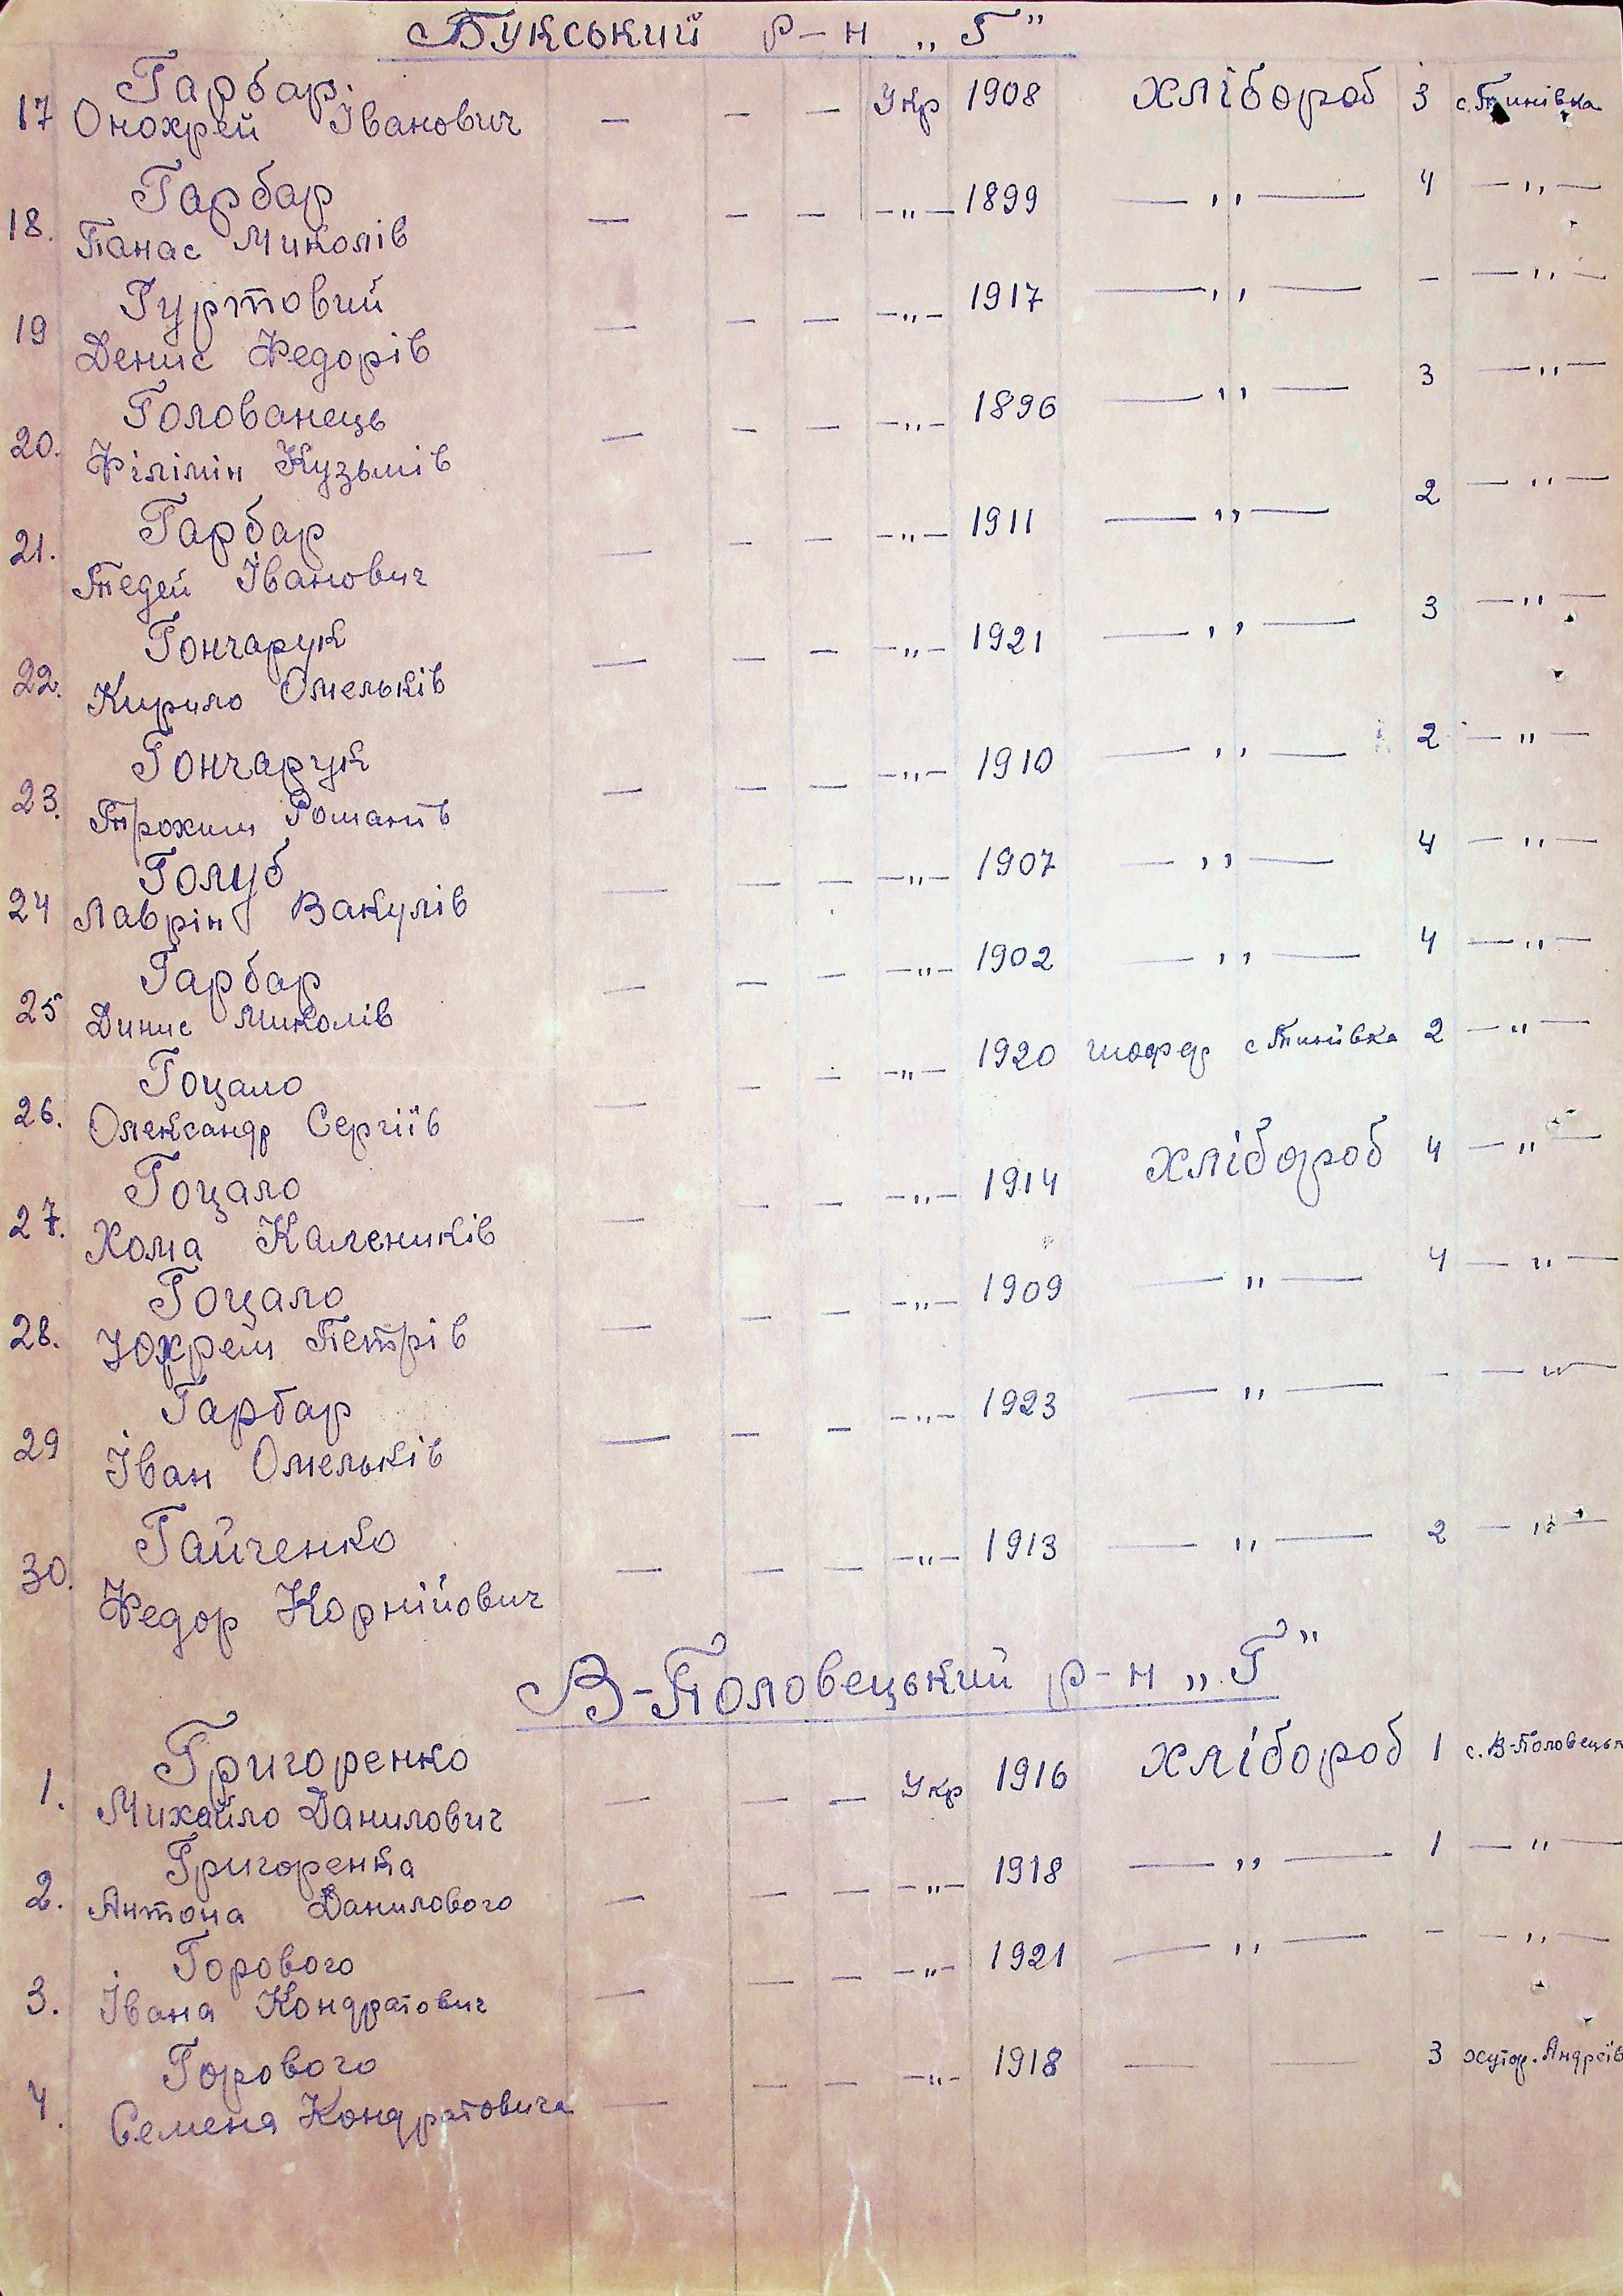 Букський р-н „Г"
Гарбар.
17 Онохрей Іванович — — — Укр 1908 хлібороб 3 с. Тинівка
Гарбар
18. Панас Миколів — — — —„— 1899 — „ — 4 — „ —
Гуртовий
19 Денис Федорів — — — —„— 1917 — „ — - — „ —
Голованець
20. Філімін Кузьмів — — — —„— 1896 — „ — 3 — „ —
Гарбар
21. Тедей Іванович — — — —„— 1911 — „ — 2 — „ —
Гончарук
22. Кирило Омельків — — — —„— 1921 — „ — 3 — „ —
Гончарук
23. Трохим Романів — — — —„— 1910 — „ — 2 — „ —
Голуб
24 Лаврін Вакулів — — — —„— 1907 — „ — 4 — „ —
Гарбар
25 Динис Миколів — — — —„— 1902 — „ — 4 — „ —
Гоцало
26. Олександр Сергіїв — — — —„— 1920 шофер с Тинівка 2 — „ —
Гоцало
27. Хома Калеників — — — —„— 1914 хлібороб 4 — „ —
Гоцало
28. Юхрем Петрів — — — —„— 1909 — „ — 4 — „ —
Гарбар
29 Іван Омельків — — — —„— 1923 — „ — - — „ —
Гайченко
30. Федор Корнійович — — — —„— 1913 — „ — 2 — „ —
В-Половецький р-н „Г"
Григоренко
1. Михайло Данилович — — — Укр 1916 хлібороб 1 с. В-Половецьк
Григоренка
2. Антона Данилового — — — —„— 1918 — „ — 1 — „ —
Горового
3. Івана Кондратович — — — —„— 1921 — „ — - — „ —
Горового
4. Семена Кондратовича — — — —„— 1918 — — 3 хутор. Андреїв